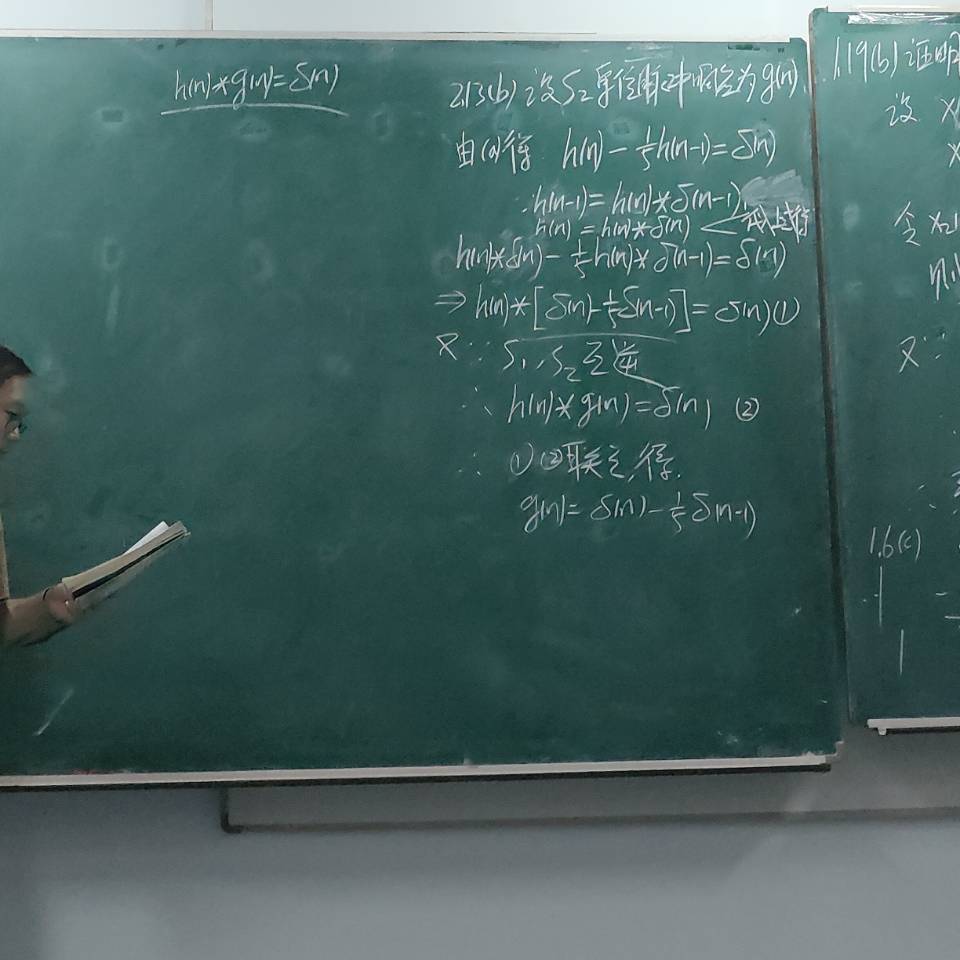 h(n)*g(n)=δ(n)
2.13(b) 设S₂单位脉冲响应为g(n)
由(a)得 h(n)-1/5h(n-1)=δ(n)
∵h(n-1)=h(n)*δ(n-1)
h(n)=h(n)*δ(n)
h(n)*δ(n)-1/5h(n)*δ(n-1)=δ(n)
⇒h(n)*[δ(n)-1/5δ(n-1)]=δ(n)①
又∵S₁,S₂互逆
∴h(n)*g(n)=δ(n) ②
∴①②联立,得.
g(n)=δ(n)-1/5δ(n-1)
1.19(b)证明
设 X
X
令 x₂
则
又∵
∴
1.6(c)